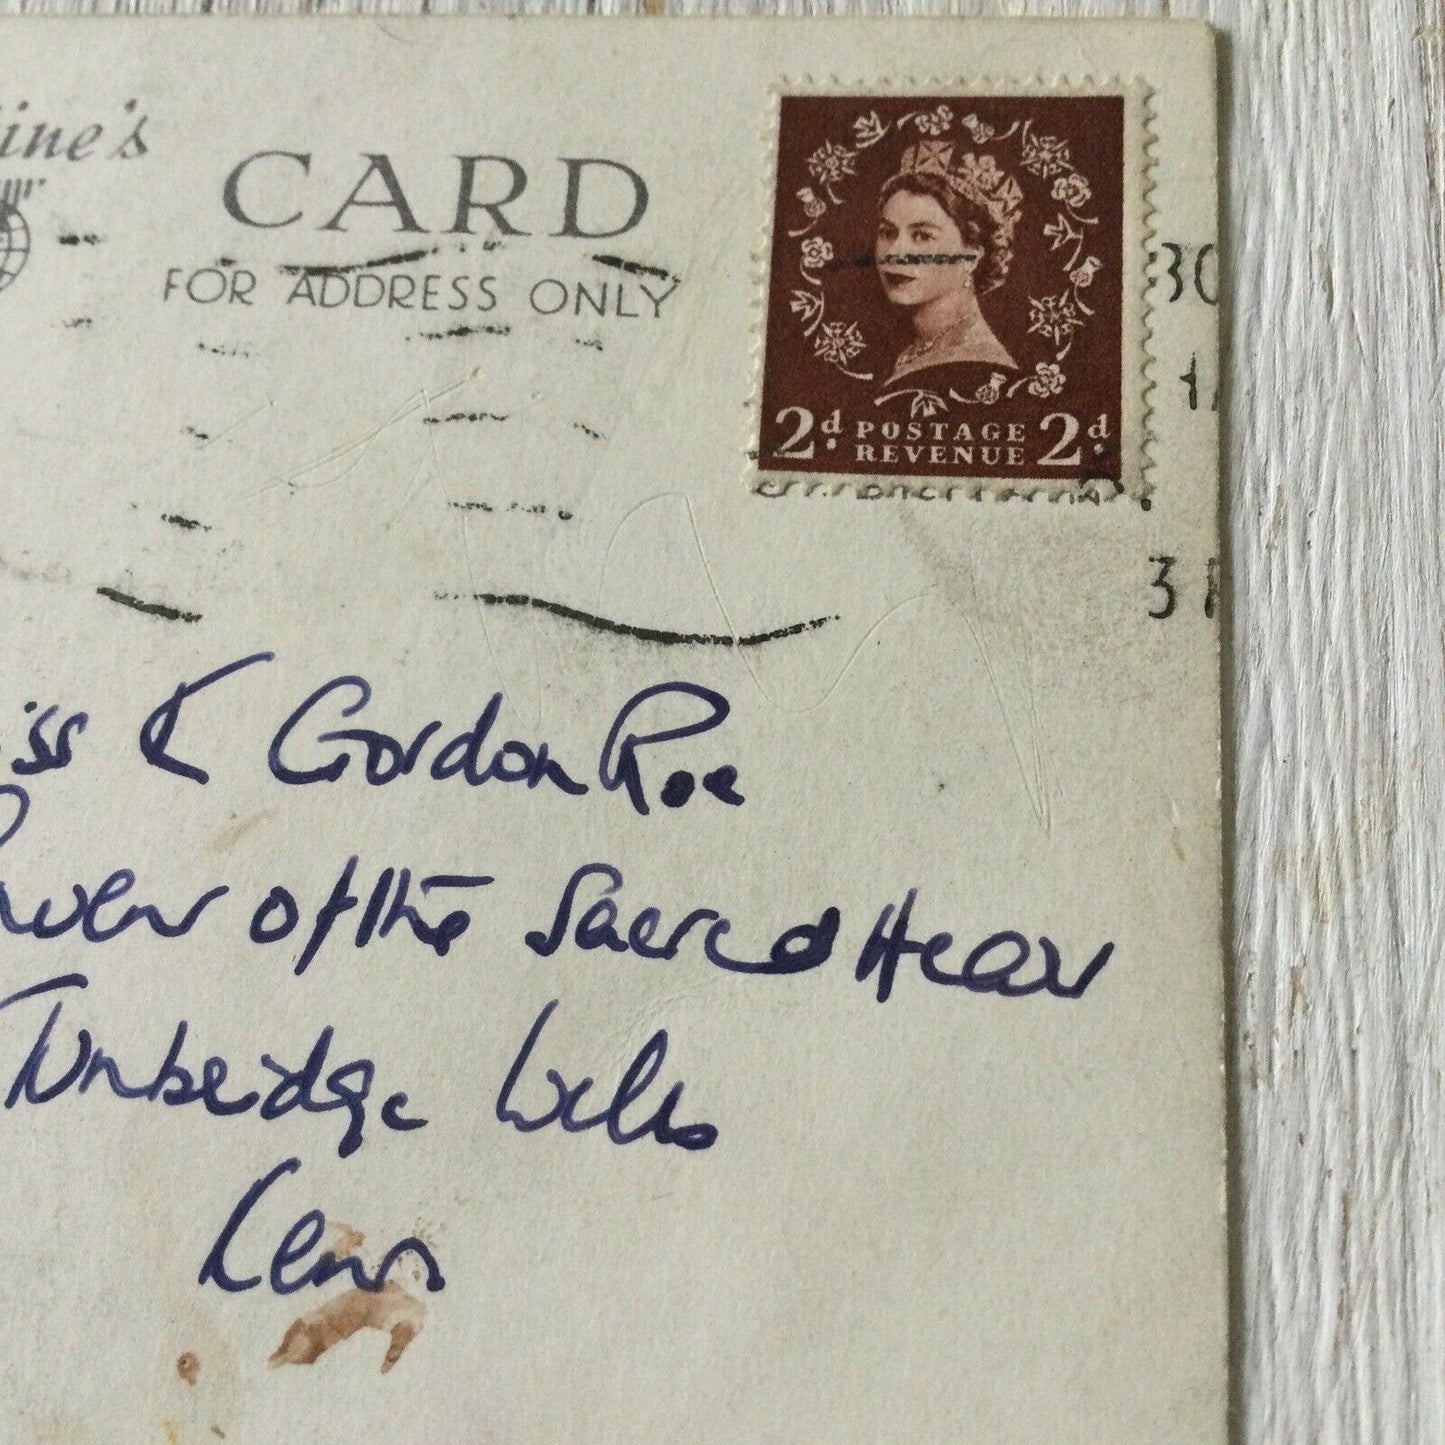 ine's
CARD
FOR ADDRESS ONLY
2d POSTAGE REVENUE 2d
30
iss K Gordon Roe
of the Sacred Heart
Tunbridge Wells
Kent